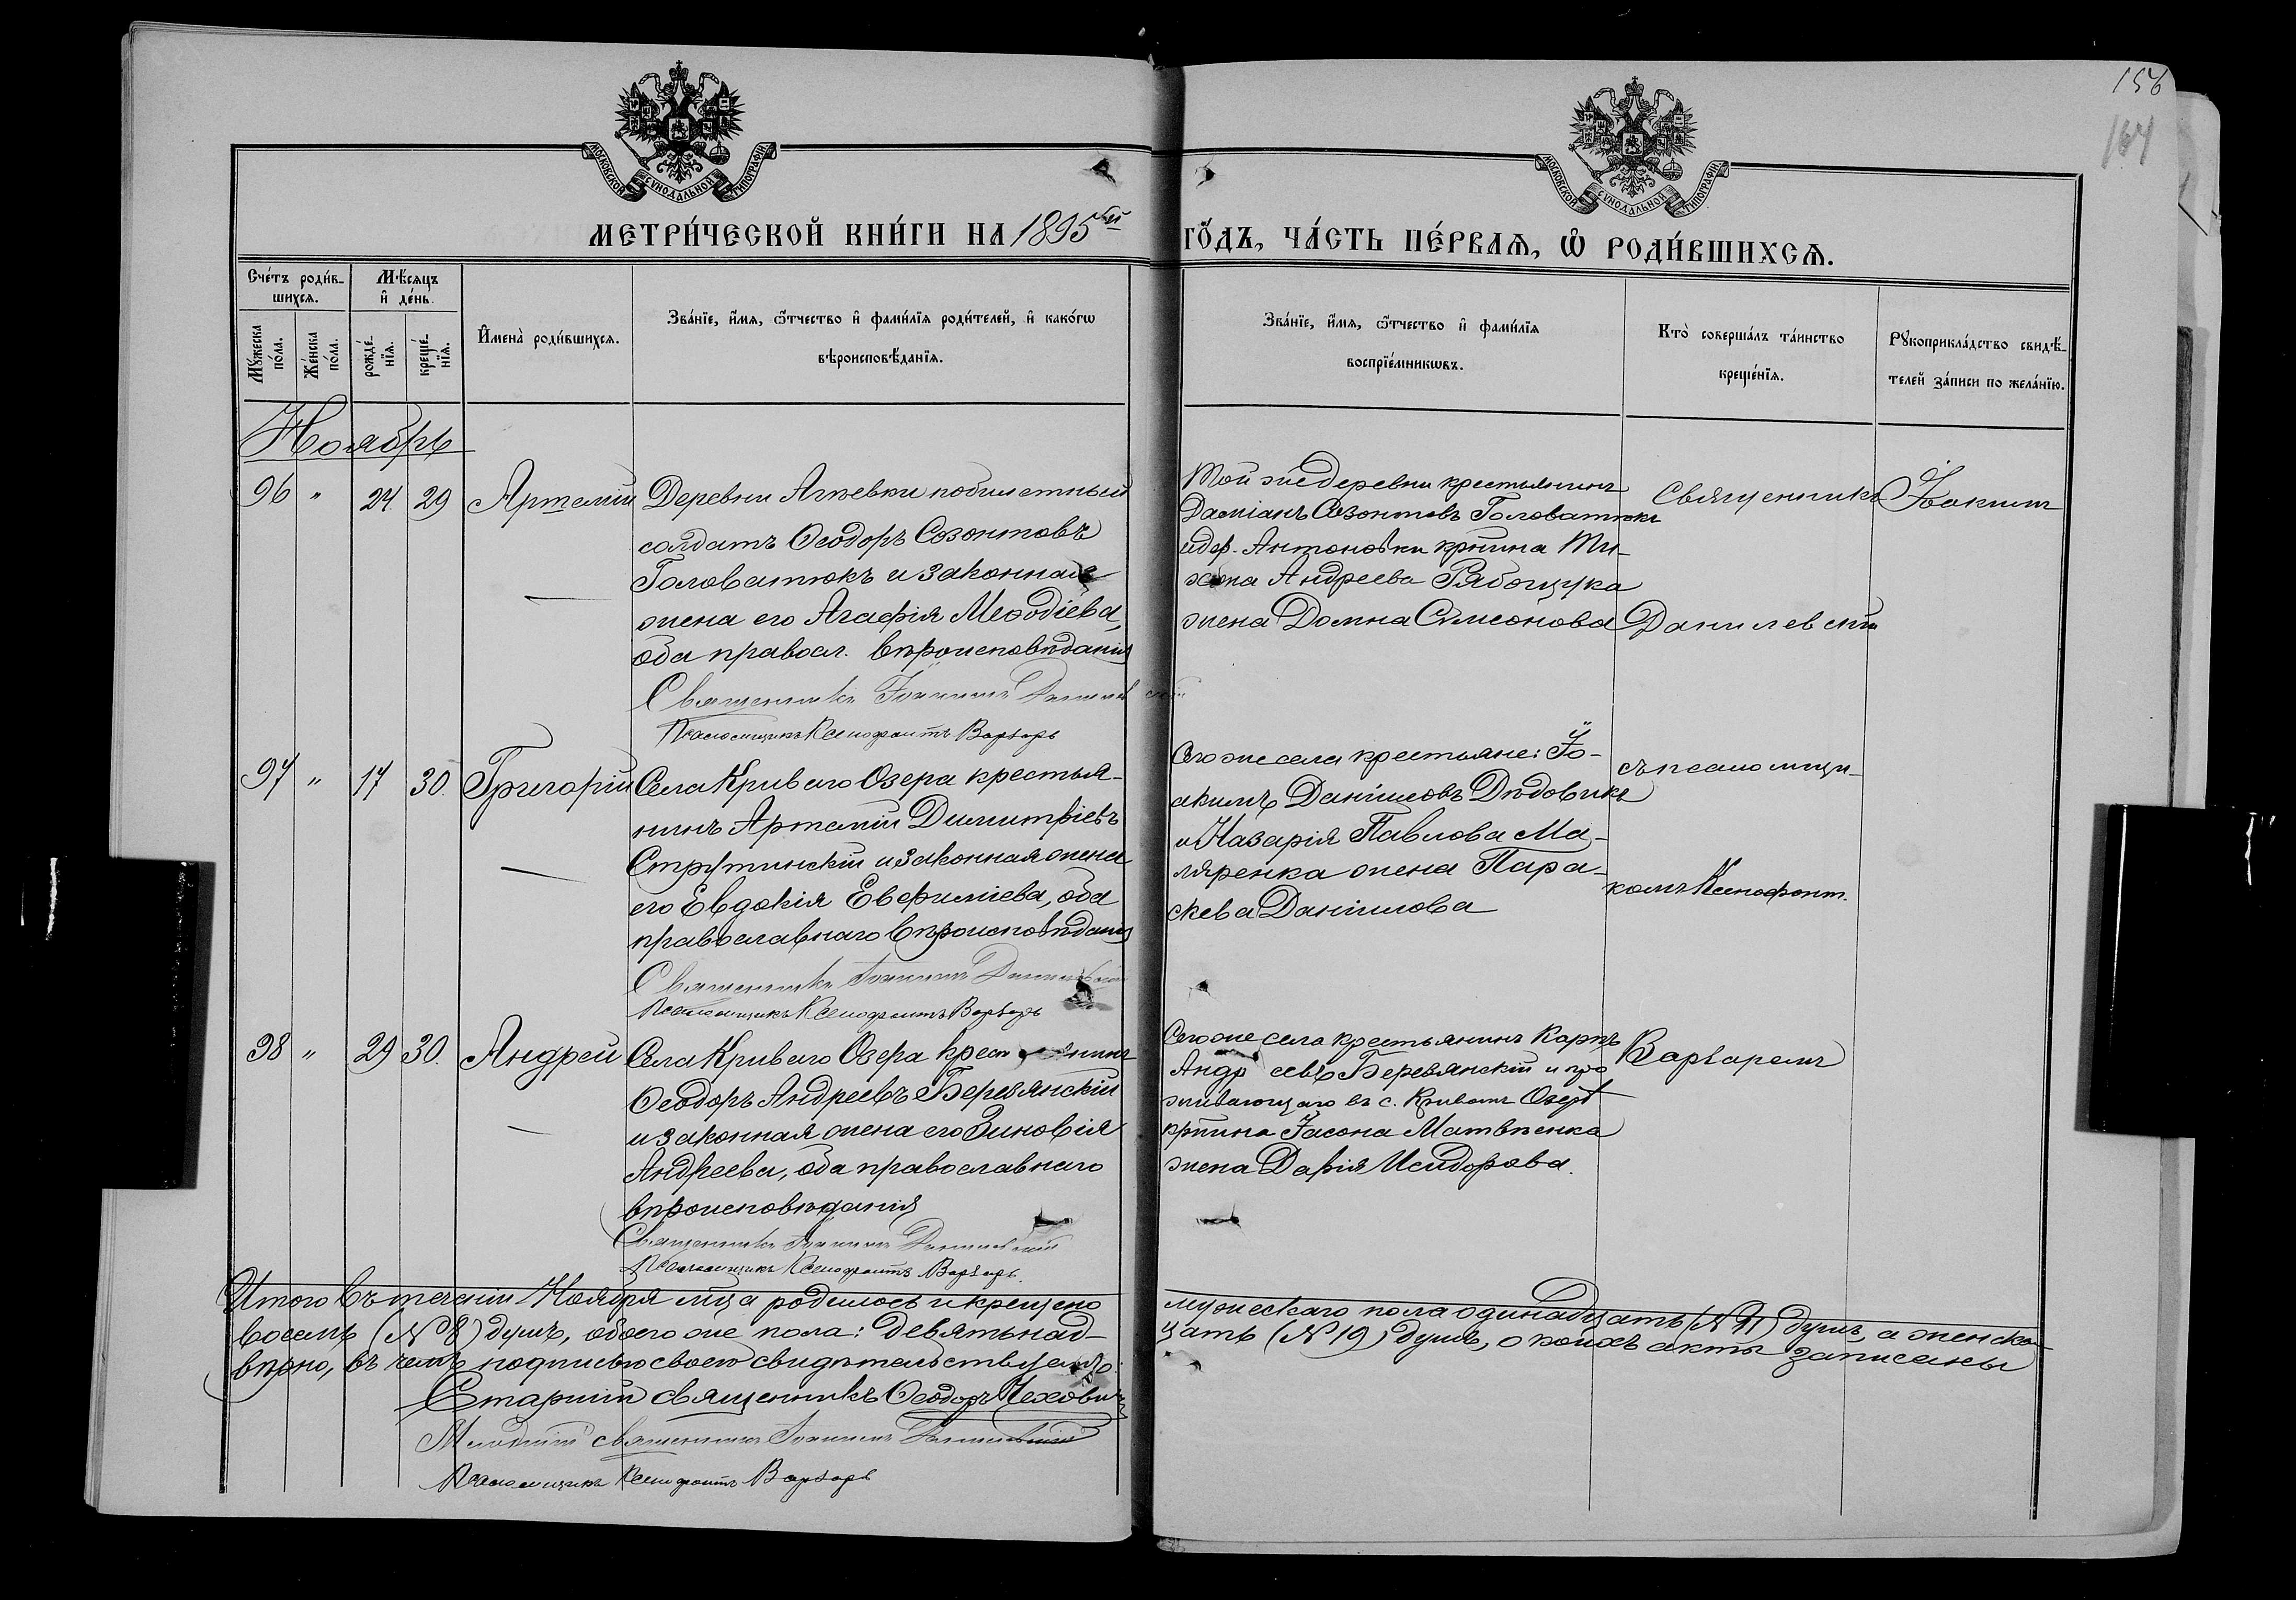 156
164
МОСКОВСКОЙ СѴНОДАЛЬНОЙ ТИПОГРАФІИ
МОСКОВСКОЙ СѴНОДАЛЬНОЙ ТИПОГРАФІИ
МЕТРИ́ЧЕСКОЙ КНИ́ГИ НА 1895ый
ГО́ДЪ, ЧА́СТЬ ПЕ́РВАѦ, Ѡ҆ РОДИ́ВШИХСѦ.
Сче́тъ роди́в-
шихсѧ.
Мѣ́сяцъ
и҆ де́нь.
Мꙋ́жеска
по́ла.
Же́нска
по́ла.
рожде́-
нїѧ.
креще́-
нїѧ.
И҆мена̀ роди́вшихсѧ.
Зва́нїе, и҆́мѧ, ѻ҆́тчество и҆ фами́лїѧ роди́телей, и҆ како́гѡ
вѣроисповѣ́данїѧ.
Зва́нїе, и҆́мѧ, ѻ҆́тчество и҆ фами́лїѧ
воспрїе́мникѡвъ.
Кто̀ соверша́лъ та́инство
креще́нїѧ.
Рꙋкоприкла́дство свидѣ́-
телей за́писи по жела́нїю.
Ноябрь
96 " 24 29 Артемій
Деревни Агѣевки побилетный
солдатъ Ѳеодоръ Созонтовъ
Головатюкъ и законная
жена его Агафія Меѳодіева,
оба правосл. вѣроисповѣданія
Священникъ Іоакимъ Данилевскій
Псаломщикъ Ксенофонтъ Варварь
Той же деревни крестьянинъ
Даміанъ Созонтовъ Головатюкъ
и дер. Антоновки крт̃ина Ти-
хона Андреева Рябощука
жена Домна Симеонова
Священникъ Іоакимъ
Данилевскій
97 " 17 30. Григорій
Села Криваго Озера крестья-
нинъ Артемій Димитріевъ
Струтинскій и законная жена
его Евдокія Евфиміева, оба
православнаго вѣроисповѣданія
Священникъ Іоакимъ Данилевскій
Псаломщикъ Ксенофонтъ Варварь
Сего же села крестьяне: Іо-
акимъ Даніиловъ Дѣдовикъ
и Назарія Павлова Ма-
ляренка жена Пара-
скева Даніилова
съ псаломщи-
комъ Ксенофонт.
98 " 29 30. Андрей
Села Криваго Озера крестьянинъ
Ѳеодоръ Андреевъ Березянскій
и законная жена его Зиновія
Андреева, оба православнаго
вѣроисповѣданія
Священникъ Іоакимъ Данилевскій
Псаломщикъ Ксенофонтъ Варварь.
Сего же села крестьянинъ Карпъ
Андреевъ Березянскій и про
живающаго въ с. Кривомъ Озерѣ
крт̃ина Іасона Матвѣенка
жена Дарія Исидорова.
Варваремъ
Итого въ теченіи Ноября мц̃а родилось и крещено
мужескаго пола одинадцать (№ 11) душъ, а женска-
восемь (№ 8) душъ, обоего же пола: девятьнад-
цать (№ 19) душъ, о коихъ акты записаны
вѣрно, въ чемъ подписью своею свидѣтельствуемъ:
Старшій священникъ Ѳеодоръ Чеховичъ
Младшій священникъ Іоакимъ Данилевскій
Псаломщикъ Ксенофонтъ Варварь